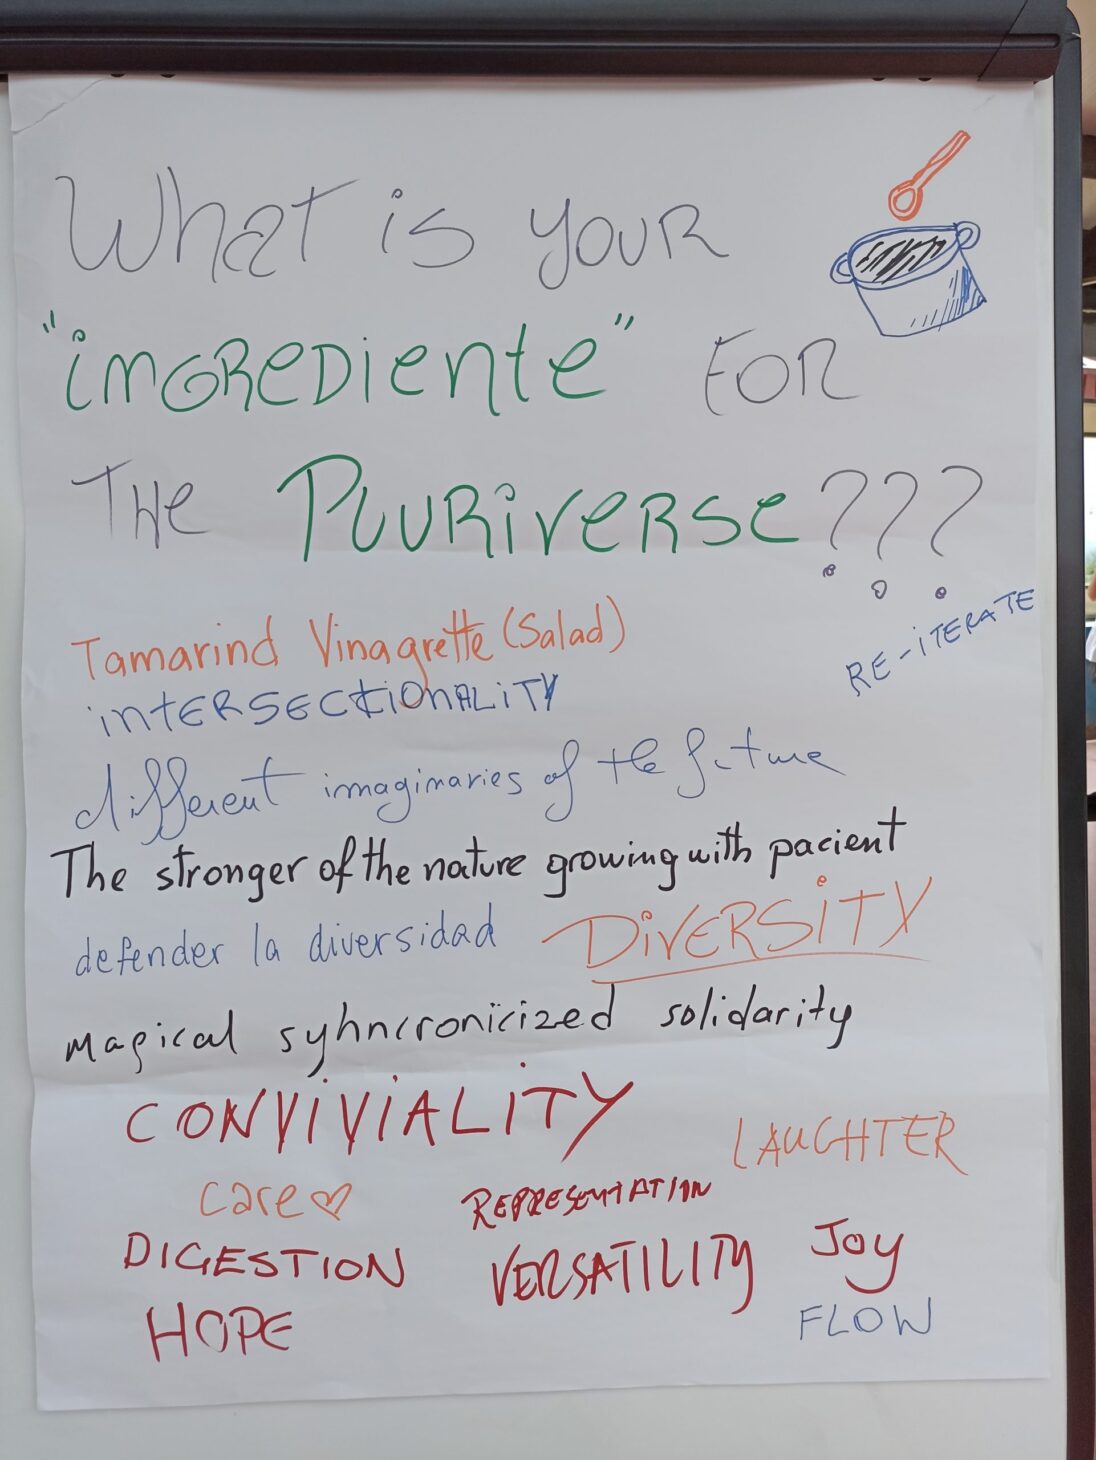 What is your
"ingrediente" for
the Pluriverse???
RE-ITERATE
Tamarind Vinagrette (Salad)
intersectionality
different imaginaries of the future
The stronger of the nature growing with pacient
defender la diversidad DiVERSiTY
magical syhncronicized solidarity
CONViViALiTY
LAUGHTER
care
REPRESENTATION
DIGESTION
VERSATILITY
Joy
HOPE
FLOW